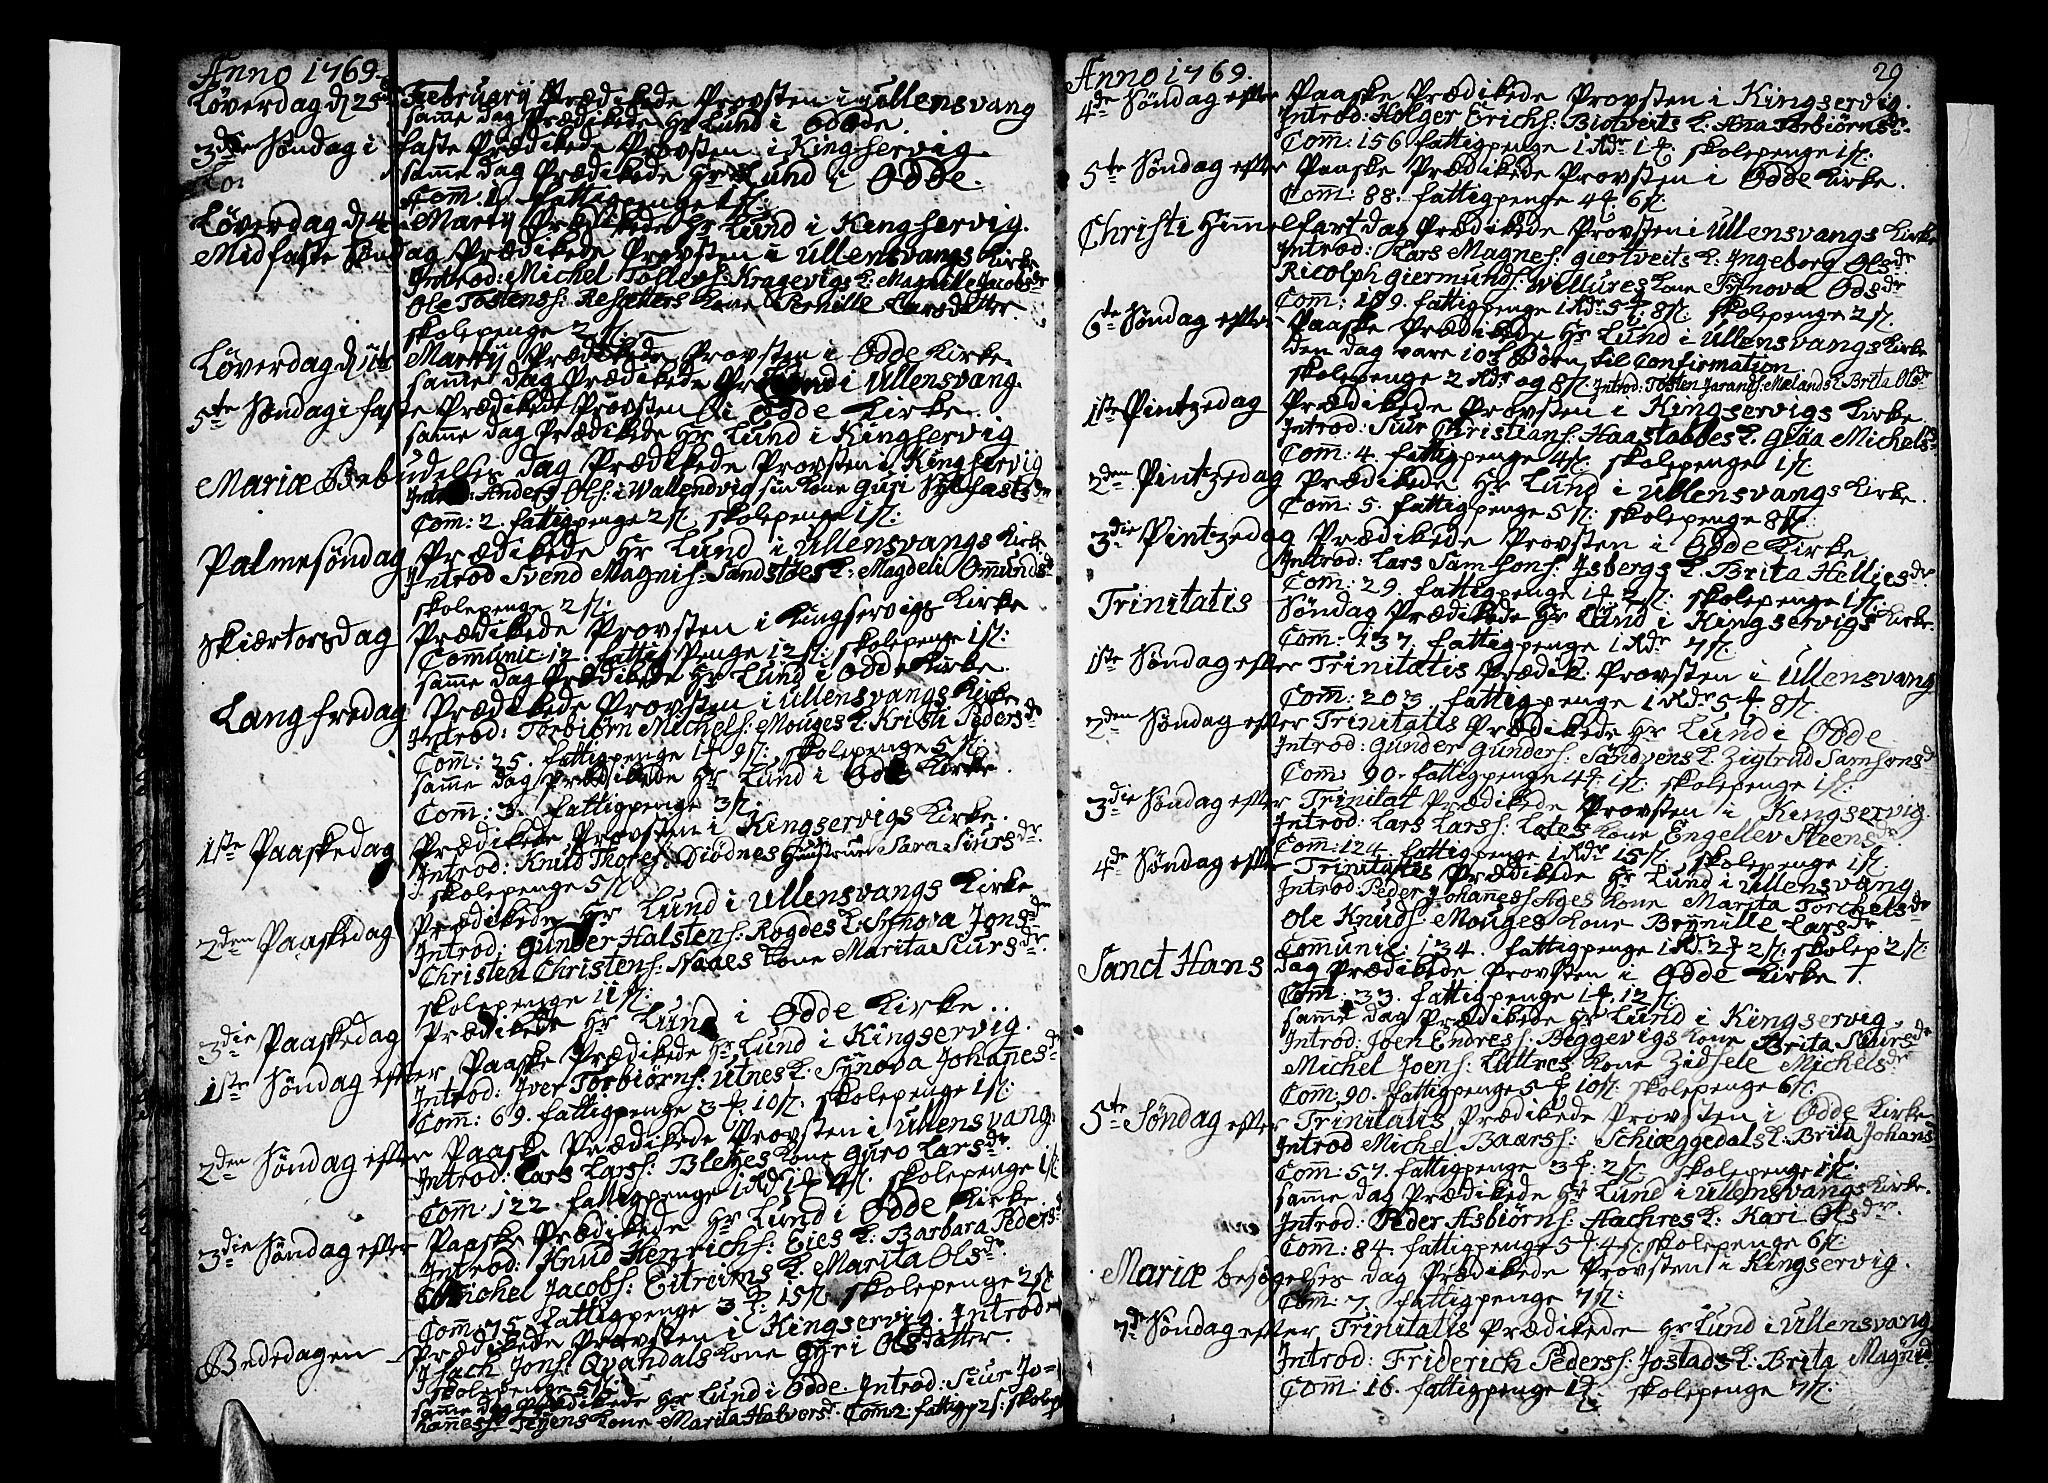 Anno 1769
Løverdag d 25de February Prædikede Provsten i Ullensvang
samme dag Prædikede Hr Lund i Odde.
3die Søndag i faste Prædikede Provsten i Kingservig
samme dag Prædikede Hr Lund i Odde.
Com: 1. fattigpenge 1 s:
Løverdag d 4 Marty Prædikede Hr Lund i Kingservig.
Midfaste Søndag Prædikede Provsten i Ullensvangs Kirke
Introd: Michel Tollefs: Kragevigs K: Magnille Jacobsdr
Ole Tostens: Resætters Kone Pernille Larsdatter
skolepenge 2 s:
Løverdag d 11te Marty Prædikede Provsten i Odde Kirke
samme dag Prædikede Hr Lund i Ullensvang.
5te Søndag i faste Prædikede Provsten i Odde Kirke.
samme dag Prædikede Hr Lund i Kingservig
Mariæ Bebudelses dag Prædikede Provsten i Kingservig
Introd: Anders Ols: i Wallendvig sin Kone Guri Sylfastsdr
Com: 2. fattigpenge 2 s: skolepenge 1 s:
Palmesøndag Prædikede Hr Lund i Ullensvangs Kirke
Introd Svend Magnis: Sandstøes K: Magdeli Omundsd
skolepenge 2 s:
Skiærtorsdag Prædikede Provsten i Kingservigs Kirke
Communic 12. fattig Penge 12 s: skolepenge 1 s:
samme dag Prædikede Hr Lund i Odde Kirke.
Langfredag Prædikede Provsten i Ullensvangs Kirke
Introd: Torbiørn Michels: Mouges K: Kristi Pedersdr
Com: 25. fattigpenge 1 # 9 s: skolepenge 5 s:
samme dag Prædikede Hr Lund i Odde Kirke.
Com: 3. fattigpenge 3 s:
1ste Paaskedag Prædikede Provsten i Kingservigs Kirke.
Introd: Knud Thores: Diødnes Huustrue Sara Siursdr.
skolepenge 5 s:
2den Paaskedag Prædikede Hr Lund i Ullensvangs Kirke
Introd: Gunder Halstens: Rogdes K: Synova Jonsdr
Christen Christens: Naaes Kone Marita Siursdr.
skolepenge 11 s:
3die Paaskedag Prædikede Hr Lund i Odde Kirke
1ste Søndag efter Paaske Prædikede Hr Lund i Kingservig.
Introd: Iver Torbiørns: Utnes K. Synova Johanesd
Com: 69. fattigpenge 3 # 10 s: skolepenge 1 s:
2den Søndag efter Paaske Prædikede Provsten i Ullensvang.
Introd: Lars Lars: Bleies Kone Guro Larsdr
Com: 122. fattigpenge 1 Rd 1 # skolepenge 1 s
3die Søndag efter Paaske Prædikede Hr Lund i Odde Kirke
Introd: Knud Henrichs: Eies K: Barbara Pedersd
Michel Jacobs: Eitreims K Marita Olsdr.
Com: 75. fattigpenge 3 #: 15 s: skolepenge 2 s:
Bededagen Prædikede Provsten i Kingservig. Introd
Isach Jons: Qvandals Kone Gyri Olsdatter.
skolepenge 5 s:
samme dag Prædikede Hr Lund i Odde Introd: Siur Jo=
hanes: Kone Marita Halvorsd. Com: 2 fattigp 2 s: skolep
Anno 1769. 29
4de Søndag efter Paaske Prædikede Provsten i Kingservig.
Introd: Holger Erichs: Biotveits K: Ana Torbiørnsdr.
Com: 156 fattigpenge 1 Rdr 1 #. skolepenge 1 s:
5te Søndag efter Paaske Prædikede Provsten i Odde Kirke.
Com: 88. fattigpenge 4 # 6 s:
Christi Himmelfart dag Prædikede Provsten i Ullensvangs Kirke
Introd: Lars Magnes: Giertveits K: Ingeborg Olsdr
Ricolph Giermunds: Wellures Kone Synova Odsdr
Com: 189. fattigpenge 1 Rdr 5 # 8 s: skolepenge 2 s:
6te Søndag efter Paaske Prædikede Hr Lund i Ullensvangs Kirke
den dag vare 103 Børn til Confirmation
skolepenge 2 Rdr og 8 s: Introd: Tosten Jarands: Mælands K Brita Olsdr
1ste Pintzedag Prædikede Provsten i Kingservigs Kirke.
Introd: Siur Christians: Haastabbes K. Giøa Michelsdr
Com: 4. fattigpenge 4 s: skolepenge 1 s:
2den Pintzedag Prædikede Hr Lund i Ullensvangs Kirke.
Com: 5. fattigpenge 5 s: skolepenge 8 s:
3die Pintzedag Prædikede Provsten i Odde Kirke
Introd: Lars Samsons: Isbergs K. Brita Helliesdr.
Com: 29. fattigpenge 1 # 2 s: skolepenge 1 s:
Trinitatis Søndag Prædikede Hr Lund i Kingservigs Kirke.
Com: 137 fattigpenge 1 Rdr 7 s:
1ste Søndag efter Trinitatis Prædik: Provsten i Ullensvang
Com: 203. fattigpenge 1 Rdr 5 # 8 s:
2den Søndag efter Trinitatis Prædikede Hr Lund i Odde
Introd: Gunder Gunders: Sandvens K Zigtrud Samsonsd
Com: 90. fattigpenge 4 # 1 s: skolepenge 1 s:
3die Søndag efter Trinitatt Prædikede Provsten i Kingservig.
Introd: Lars Lars: Lotes Kone Engellev Steensdr.
Com: 124. fattigpenge 1 Rdr 15 s: skolepenge 1 s:
4de Søndag efter Trinitatis Prædikede Hr Lund i Ullensvang
Introd: Peder Johannes: Ages Kone Marita Torchelsdr
Ole Knuds: Mouges Kone Brynille Larsdr.
Comunic: 134. fattigpenge 1 Rd 2 # 2 s: skolep 2 s:
Sanct Hans dag Prædikede Provsten i Odde Kirke †
Com: 33. fattigpenge 1 # 12 s:
samme dag Prædikede Hr Lund i Kingservig
Introd: Joen Endres: Beggevigs Kone Brita Siursdr
Michel Joens: Luttres Kone Zidsele Michelsdr
Com: 90. fattigpenge 5 # 10 s: skolepenge 6 s:
5te Søndag efter Trinitatis Prædikede Provsten i Odde Kirke
Introd Michel Baars: Schiæggedals K: Brita Johansd
Com: 57. fattigpenge 3 #: 2 s: skolepenge 1 s:
samme dag Prædikede Hr Lund i Ullensvangs Kirke.
Introd: Peder Asbiørns: Hachres K: Kari Olsdr.
Com: 84. fattigpenge 5 #: 4 s: skolepenge 6 s:
Mariæ besøgelses dag Prædikede Provsten i Kingservig.
Com: 7. fattigpenge 7 s:
7de Søndag efter Trinitatis Prædikede Hr Lund i Ullensvang
Introd: Friderich Peders: Jostads K: Brita Magnid
Com: 16. fattigpenge 1 #: skolepenge 7 s: